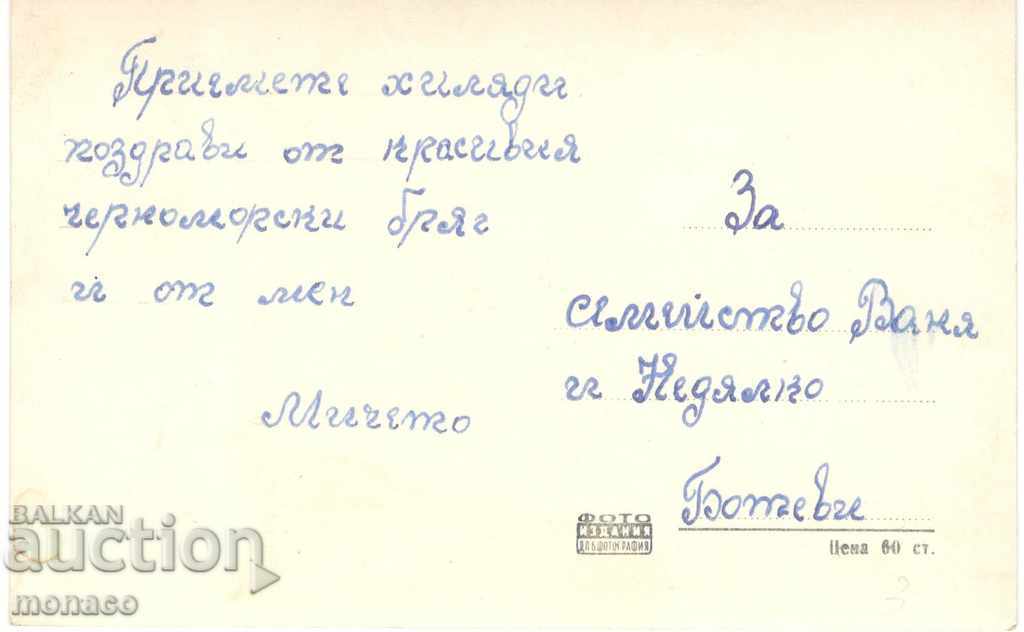 Приемете хиляди
поздрави от красивия
черноморски бряг
и от мен
Мичето
За
семейство Ваня
и Недялко
Ботеви
ФОТО
ИЗДАНИЯ
ДП БЪЛГ. ФОТОГРАФИЯ
Цена 60 ст.
BALKAN
auction
monaco